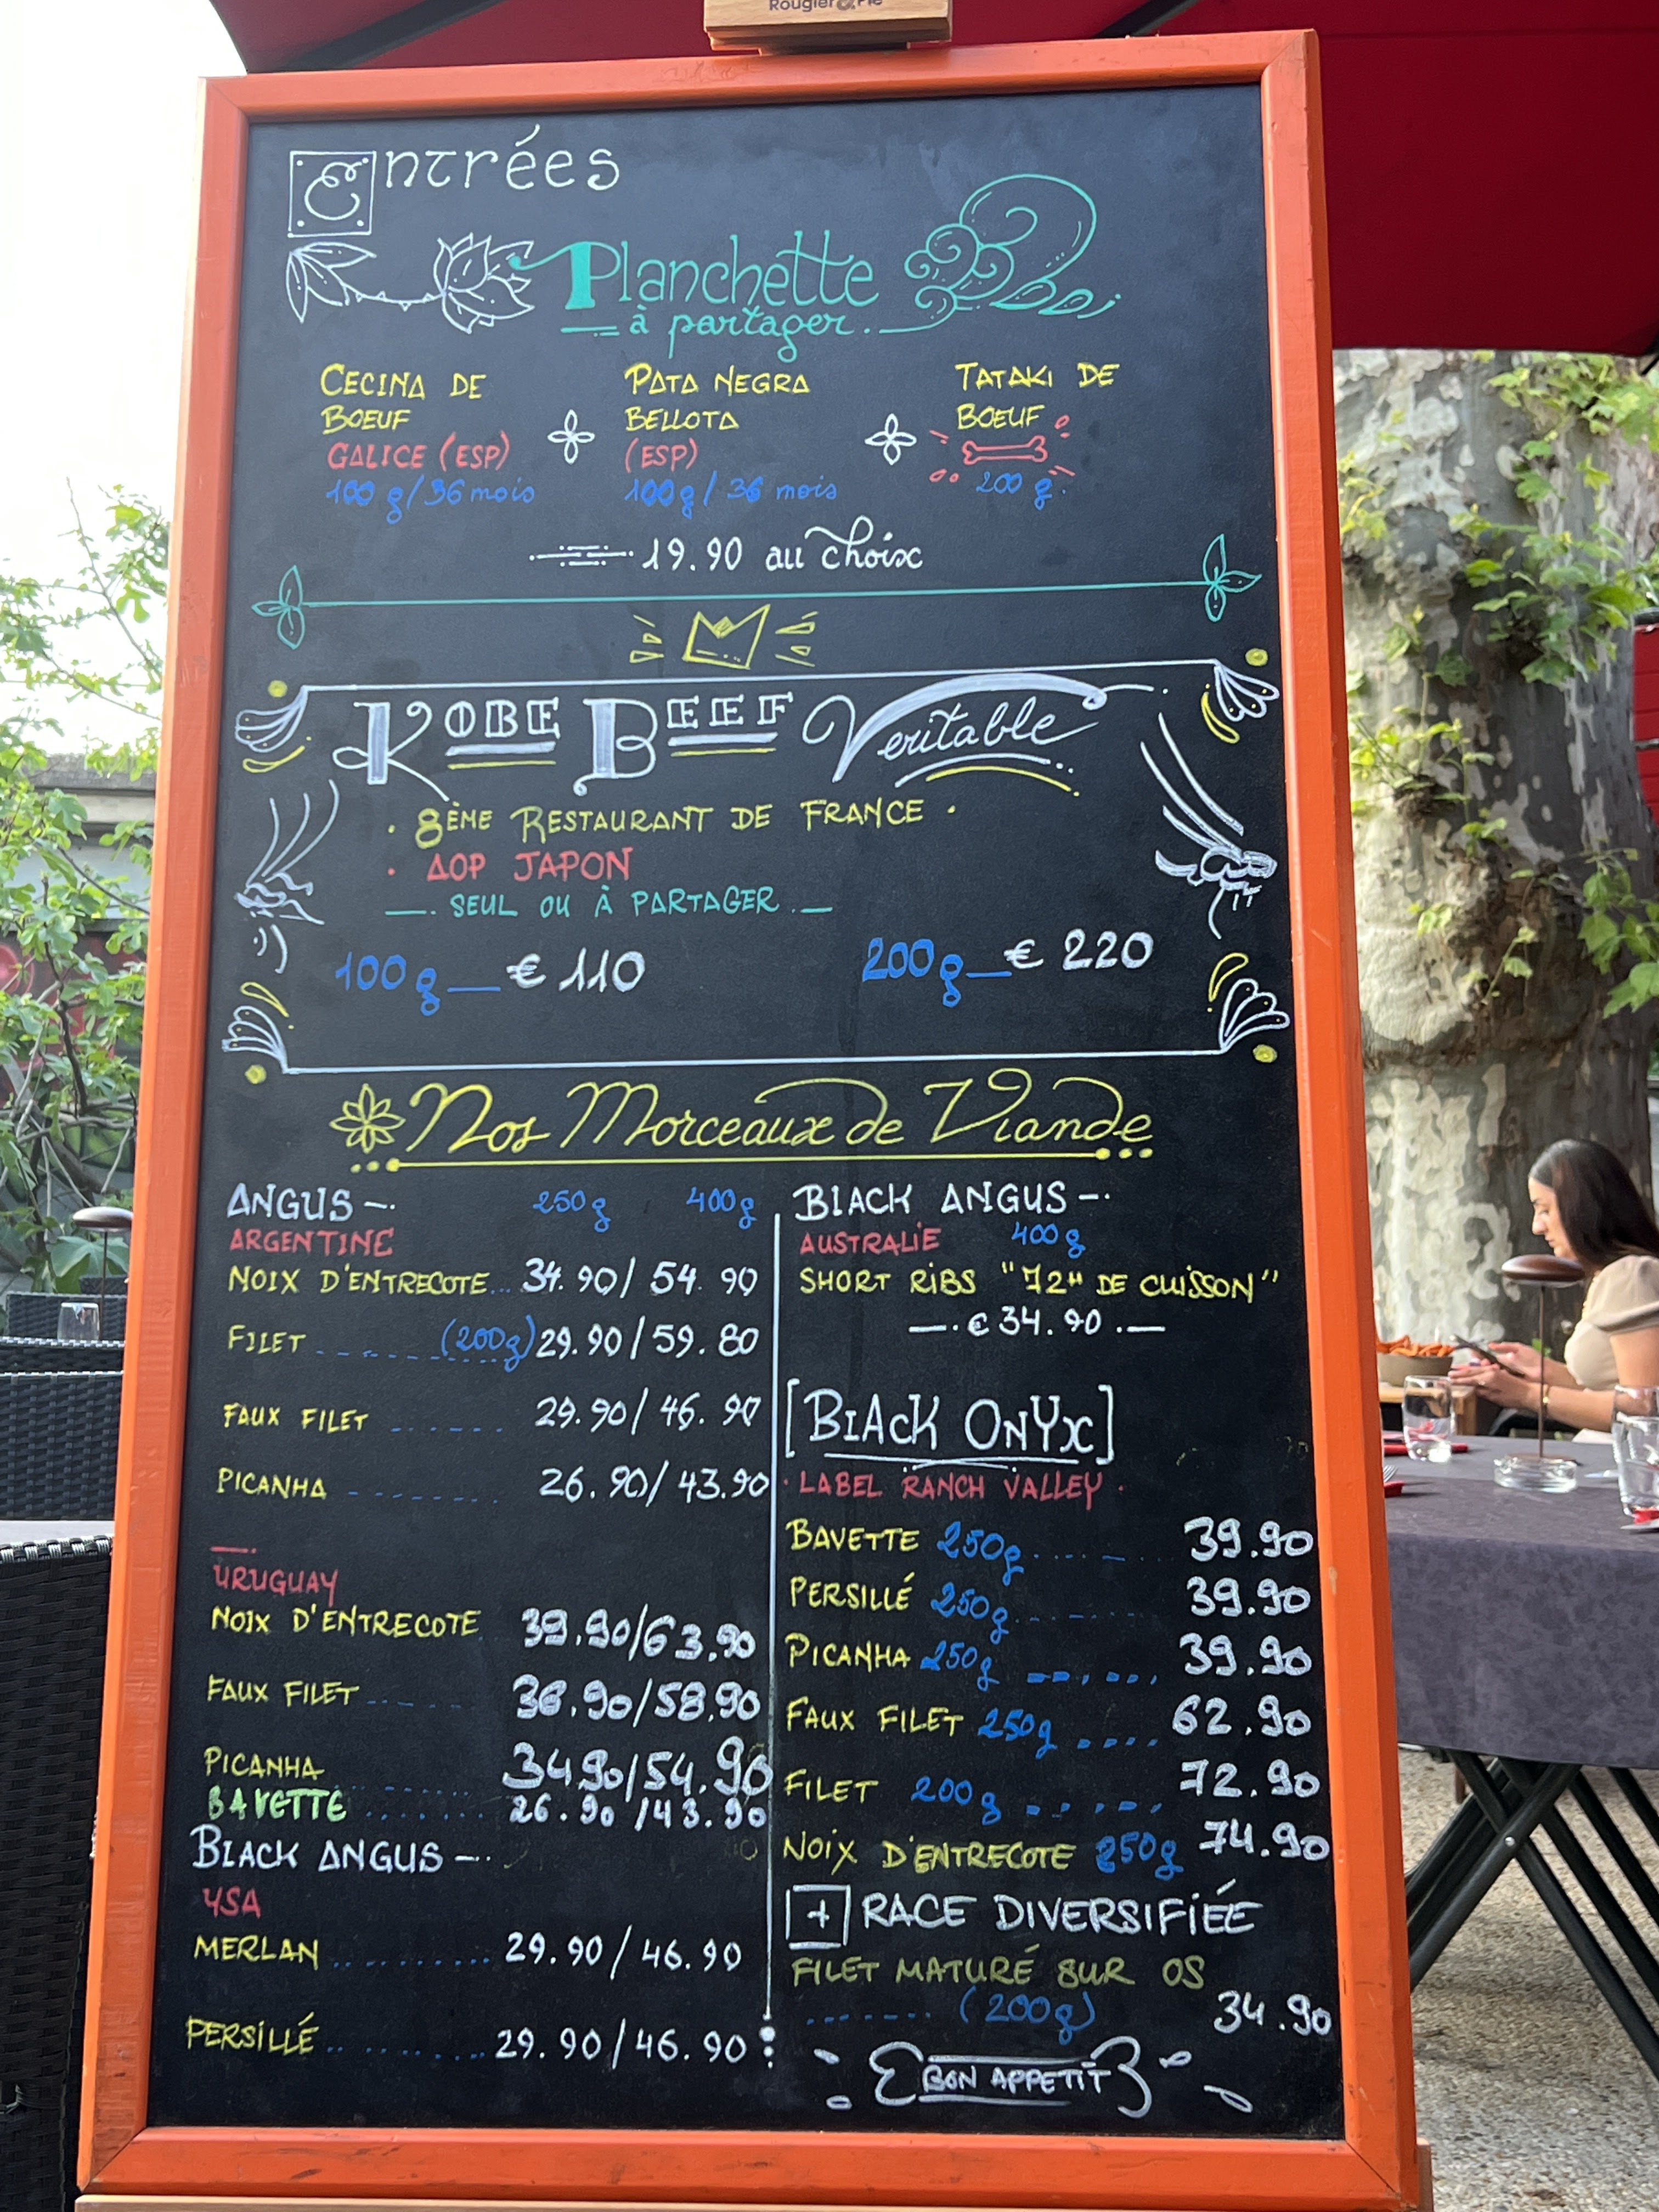 Rougier&Plé
Entrées
Planchette
à partager.
CECINA DE BOEUF
GALICE (ESP)
100 g/36 mois
PATA NEGRA BELLOTA
(ESP)
100g/ 36 mois
TATAKI DE BOEUF
200 g.
19.90 au choix
KOBE BEEF Veritable
· 8ÈME RESTAURANT DE FRANCE ·
· AOP JAPON
—. SEUL OU À PARTAGER .—
100 g — € 110
200 g — € 220
Nos Morceaux de Viande
ANGUS —· 250g 400g
ARGENTINE
NOIX D'ENTRECOTE... 34.90/ 54.90
FILET ........ (200g) 29.90/59.80
FAUX FILET ........ 29.90/46.90
PICANHA ........ 26.90/43.90
URUGUAY
NOIX D'ENTRECOTE 39.90/63.90
FAUX FILET ........ 36.90/58.90
PICANHA ........ 34.90/54.90
BAVETTE ........ 26.90/43.90
BLACK ANGUS —·
USA
MERLAN ........ 29.90/46.90
PERSILLÉ ........ 29.90/46.90
BLACK ANGUS —·
AUSTRALIE 400g
SHORT RIBS "72H DE CUISSON"
—·€ 34.90 .—
[BLACK ONYX]
· LABEL RANCH VALLEY ·
BAVETTE 250g ........ 39.90
PERSILLÉ 250g ........ 39.90
PICANHA 250g ........ 39.90
FAUX FILET 250g .... 62.90
FILET 200g ........ 72.90
NOIX D'ENTRECOTE 250g 74.90
+ RACE DIVERSIFIÉE
FILET MATURÉ SUR OS
........ (200g) 34.90
BON APPETIT